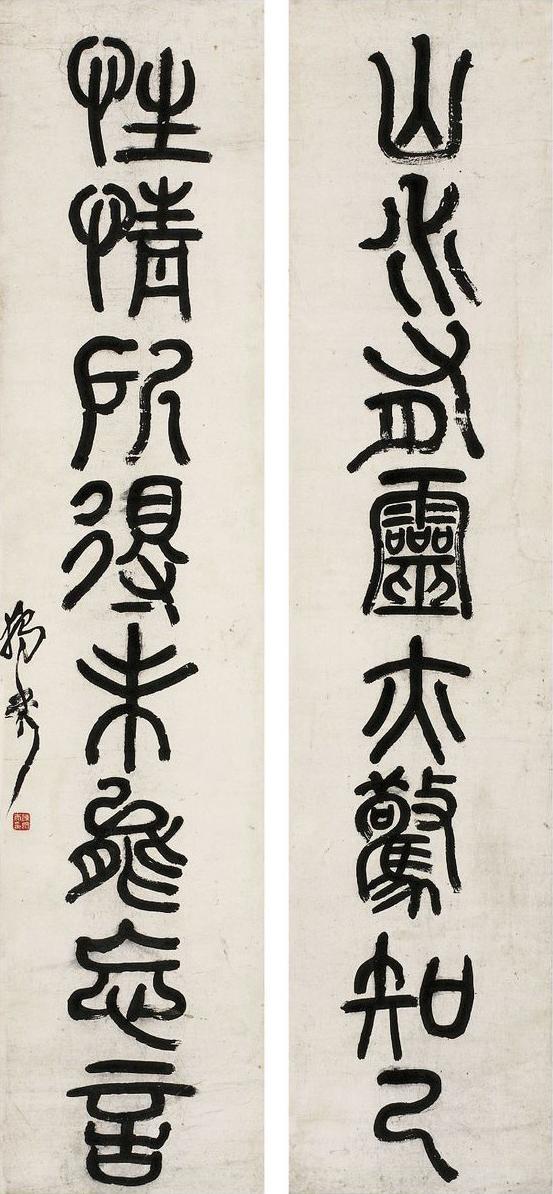 山水有靈亦驚知己
性情所得未能忘言
獨秀